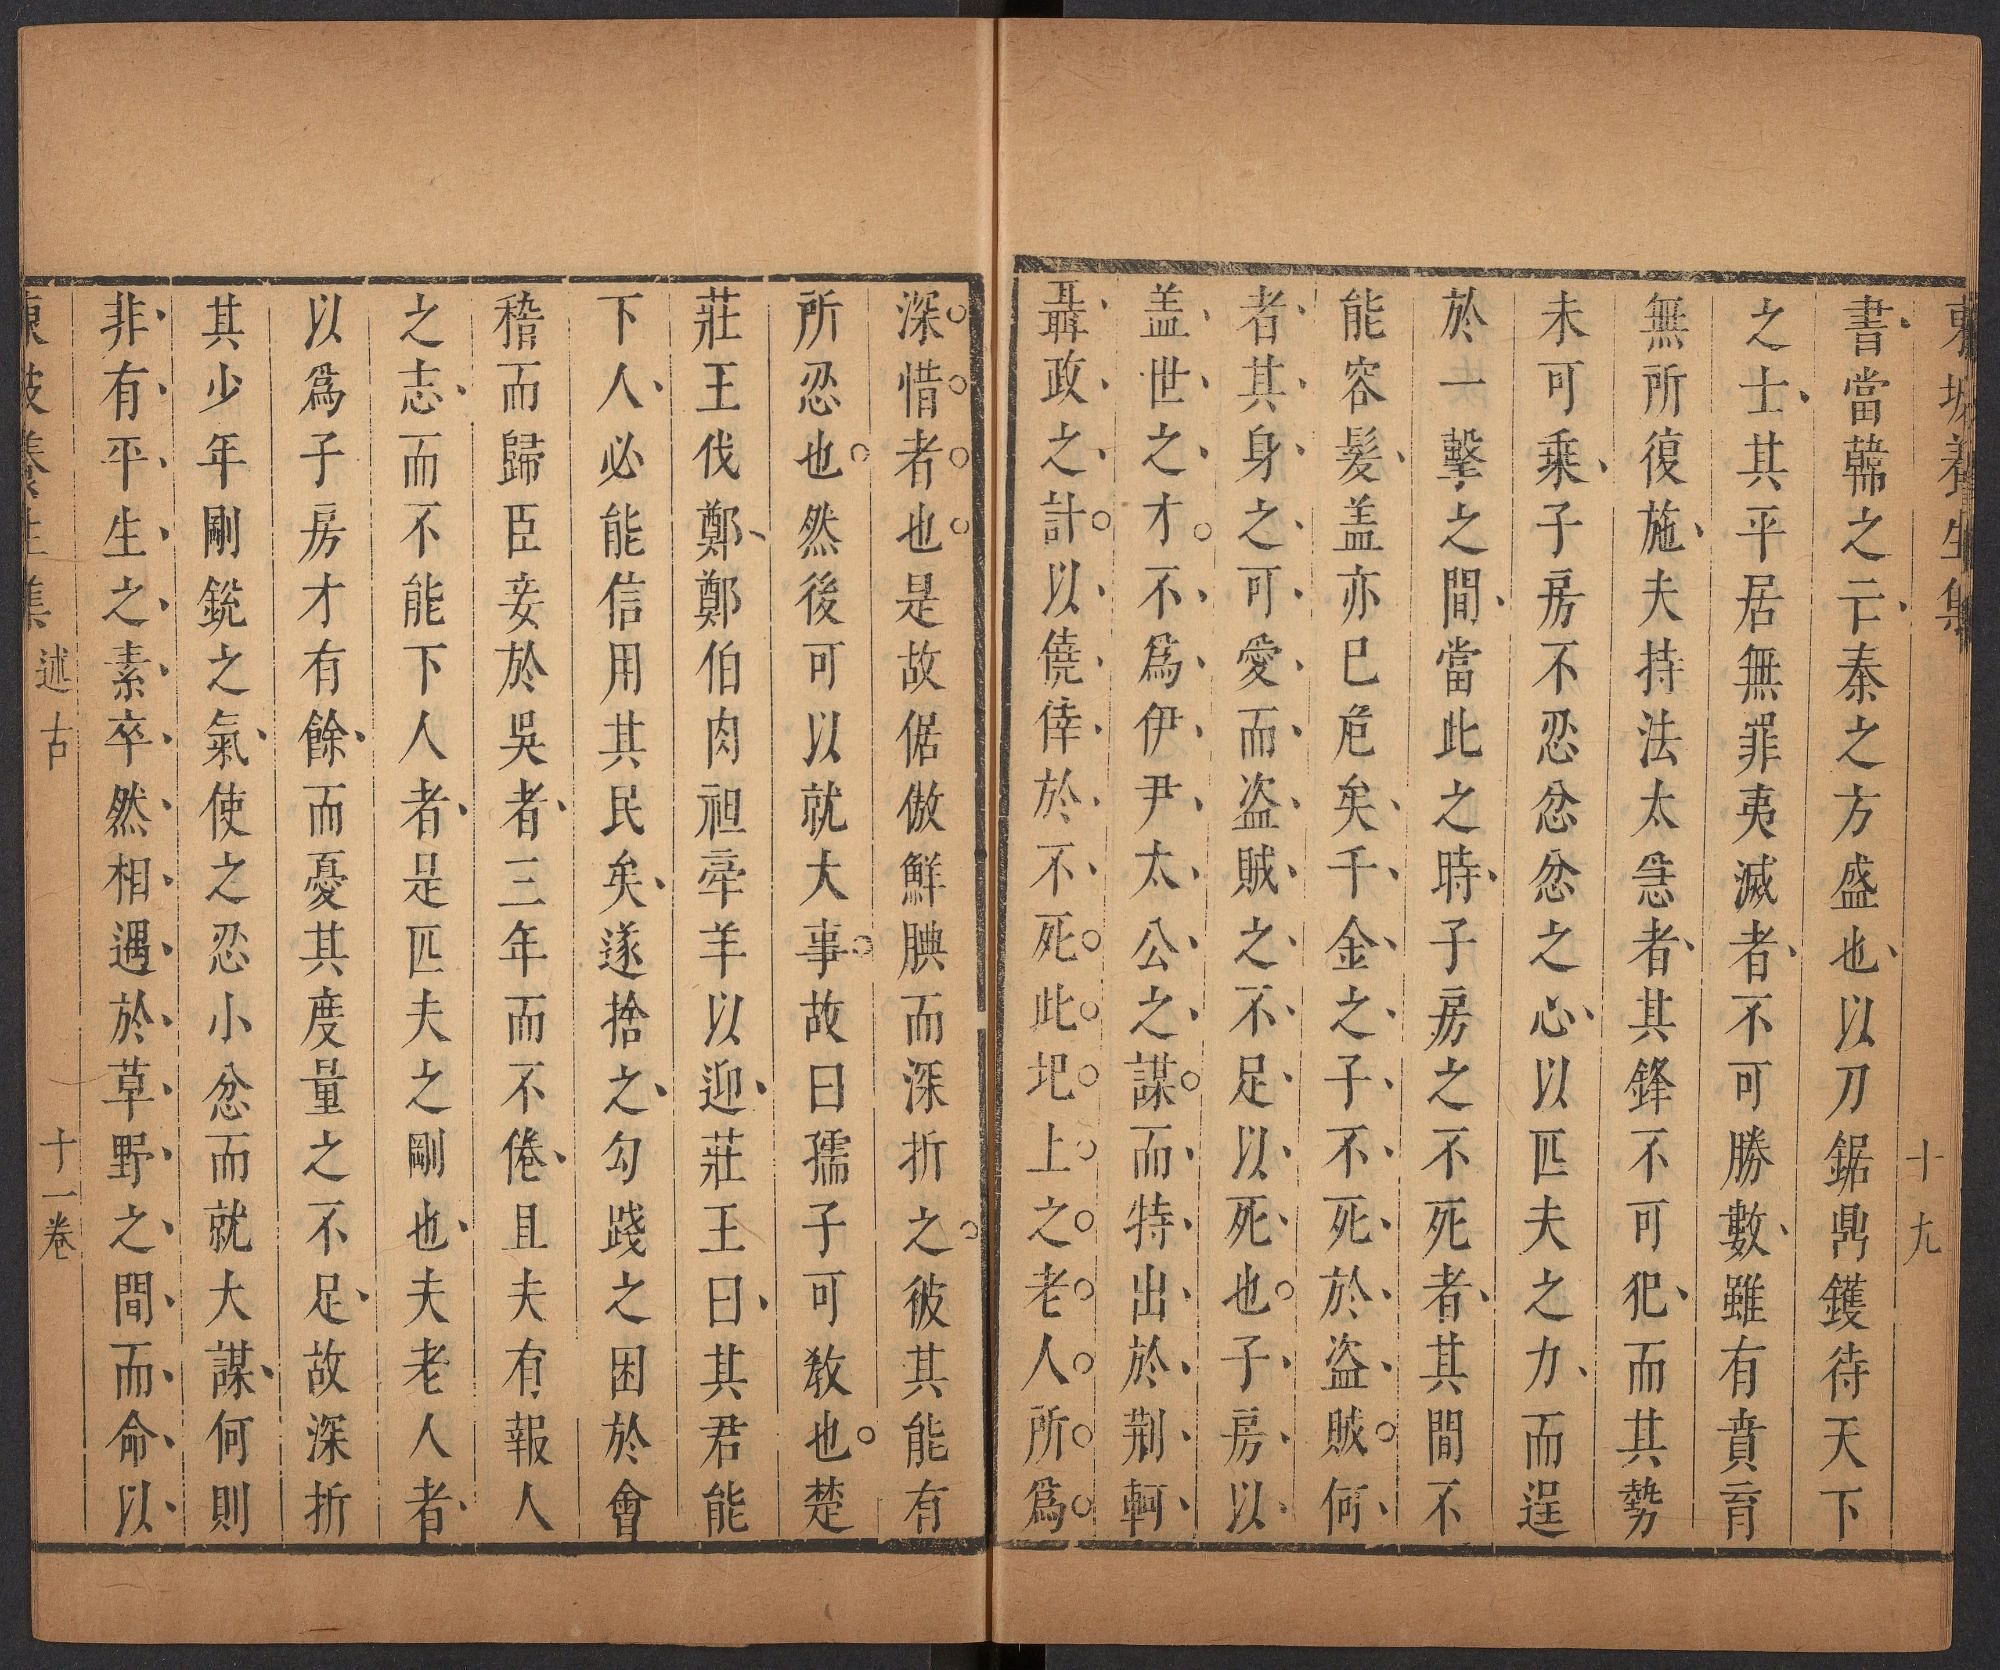 東坡養生集
十九
書當韓之亡秦之方盛也以刀鋸鼎鑊待天下
之士其平居無罪夷滅者不可勝數雖有賁育
無所復施夫持法太急者其鋒不可犯而其勢
未可乗子房不忍忿忿之心以匹夫之力而逞
於一擊之間當此之時子房之不死者其間不
能容髮盖亦已危矣千金之子不死於盗賊何
者其身之可愛而盗賊之不足以死也子房以
盖世之才不爲伊尹太公之謀而特出於荆軻
聶政之計以僥倖於不死此圯上之老人所爲
深惜者也是故倨傲鮮腆而深折之彼其能有
所忍也然後可以就大事故曰孺子可教也楚
莊王伐鄭鄭伯肉袒牽羊以迎莊王曰其君能
下人必能信用其民矣遂捨之勾踐之困於會
稽而歸臣妾於吳者三年而不倦且夫有報人
之志而不能下人者是匹夫之剛也夫老人者
以爲子房才有餘而憂其度量之不足故深折
其少年剛銳之氣使之忍小忿而就大謀何則
非有平生之素卒然相遇於草野之間而命以
東坡養生集 述古 十一卷